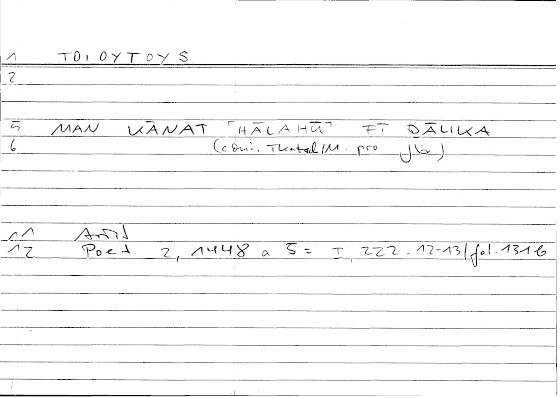 1 TOIOYTOYS
2
5 MAN KĀNAT "HĀLAHŪ" FĪ ḎĀLIKA
6 (coni. Tkatsch/M. pro
11 Arist
12 Poet 2, 1448 a 5 = I, 222. 12-13/fol. 131b